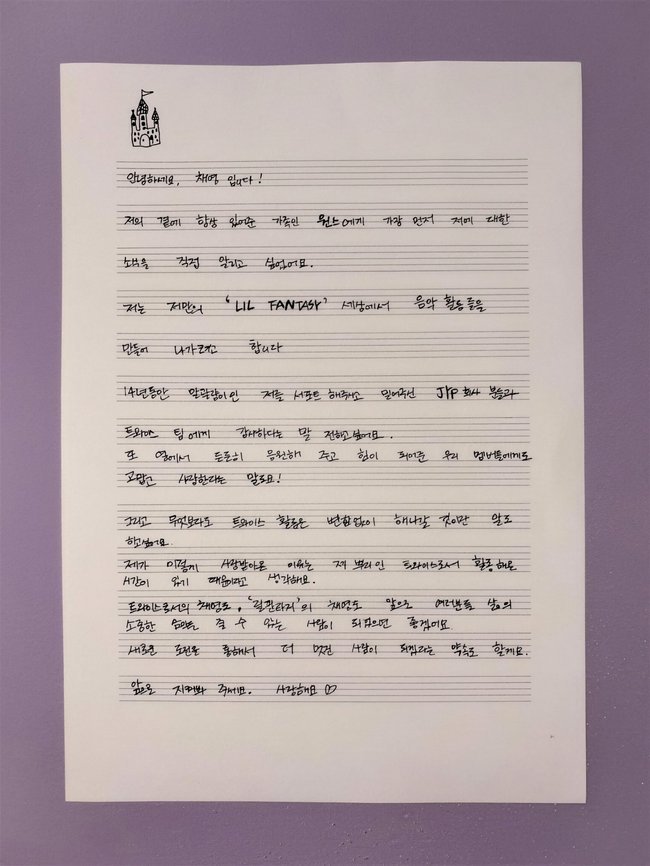 안녕하세요, 채영 입니다!
저의 곁에 항상 있어준 가족인 원스에게 가장 먼저 저에 대한
소식을 직접 알리고 싶었어요.
저는 저만의 'LIL FANTASY' 세상에서 음악 활동들을
만들어 나가려고 합니다
14년동안 말괄량이인 저를 서포트 해주시고 믿어주신 JYP 회사 분들과
트와이스 팀에게 감사하다는 말 전하고싶어요.
또 옆에서 든든히 응원해 주고 힘이 되어준 우리 멤버들에게도
고맙고 사랑한다는 말로요!
그리고 무엇보다도 트와이스 활동은 변함없이 해나갈 것이란 말도
하고싶어요.
제가 이렇게 사랑받아온 이유는 제 뿌리인 트와이스로서 활동해온
시간이 있기 때문이라고 생각해요.
트와이스로서의 채영도, '릴판타지'의 채영도 앞으로 여러분들 삶의
소중한 을 줄 수 있는 사람이 되었으면 좋겠어요
새로운 도전을 통해서 더 멋진 사람이 되겠다는 약속도 할게요.
앞으로 지켜봐 주세요. 사랑해요♡